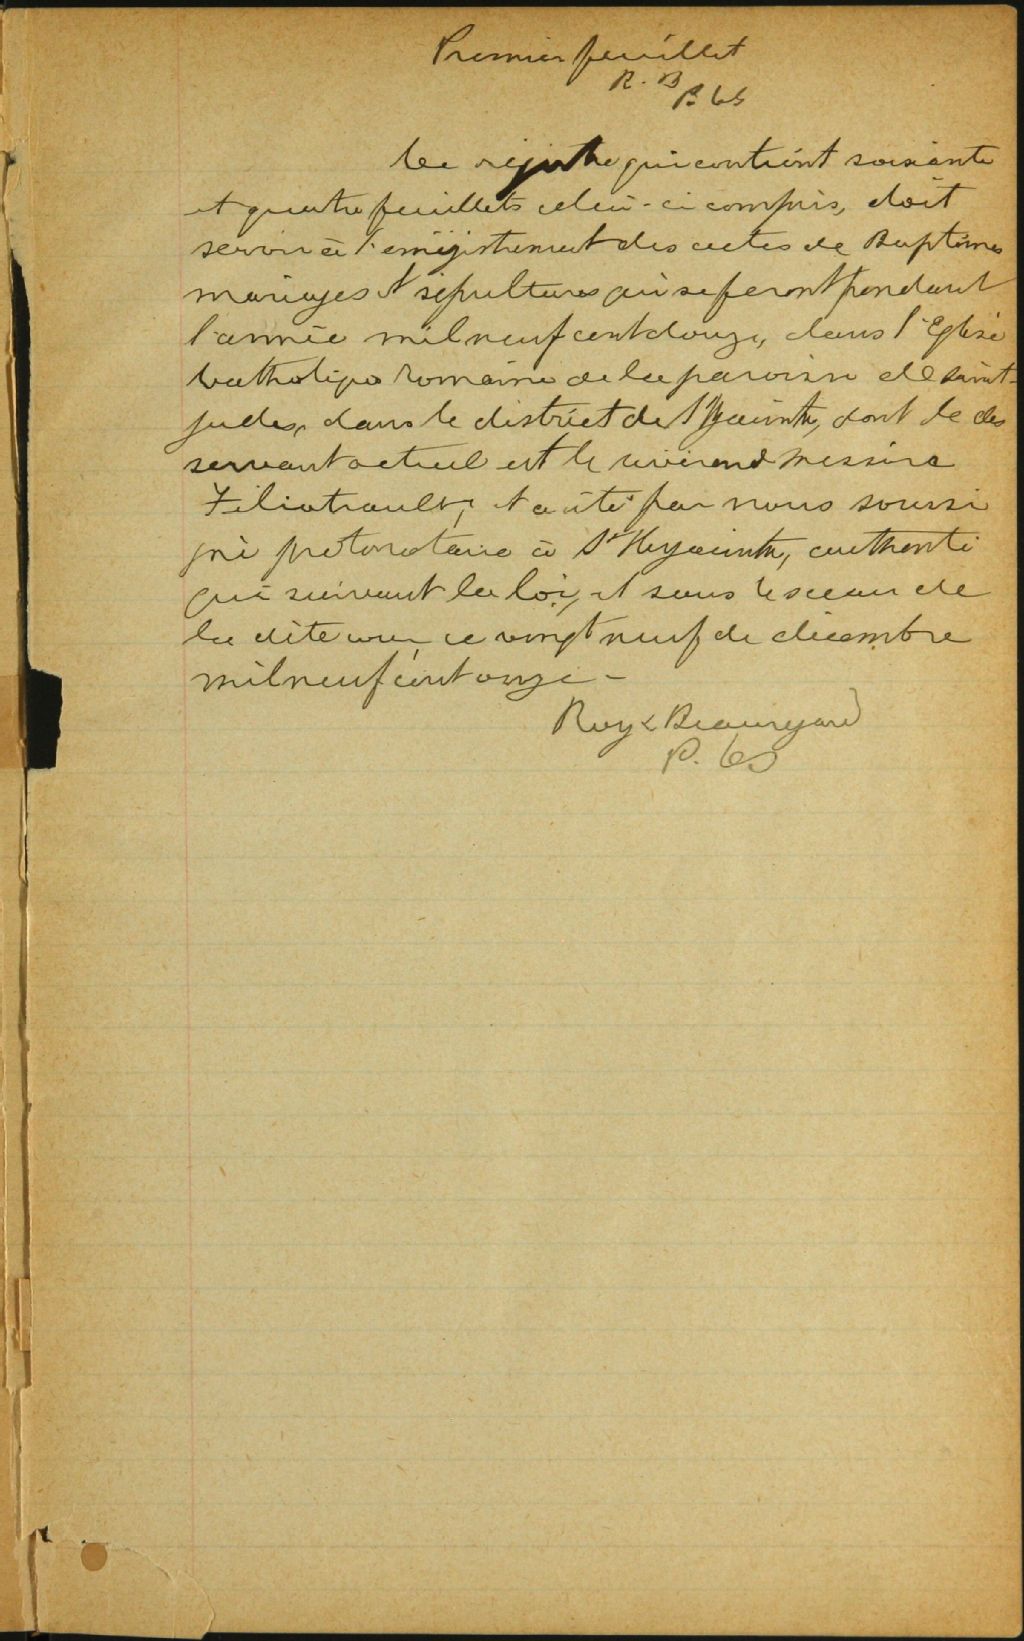 Premier feuillet
R. B
P. C S
Ce registre qui contient soixante
et quatre feuillets celui-ci compris, doit
servir à l'enrégistrement des actes de Baptêmes
mariages et sépultures qui se feront pendant
l'année mil neuf cent douze, dans l'Eglise
Catholique Romaine de la paroisse de Saint-
Judes, dans le district de St Hyacinthe, dont le des
servant actuel est le révérend Messire
Filiatrault, et a été par nous soussi
gné protonotaire à St Hyacinthe, authenti
qué suivant la loi, et sous le sceau de
la dite cour ce vingt neuf de décembre
mil neuf cent onze -
Roy & Beauregard
P. C S